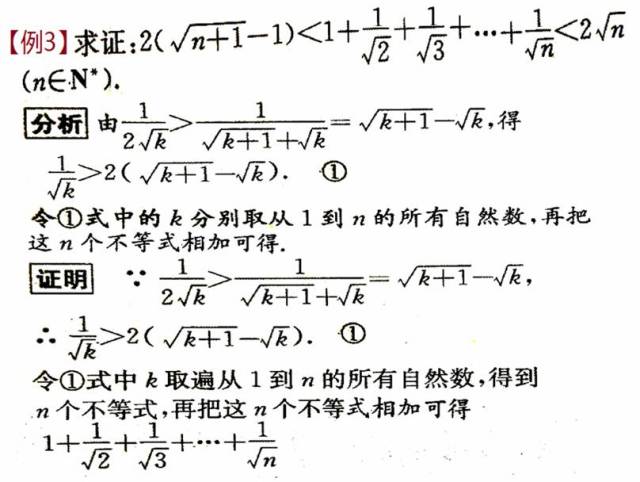 【例3】求证:2(√(n+1)-1)<1+1/√2+1/√3+…+1/√n<2√n
(n∈N*).
分析 由1/(2√k)>1/(√(k+1)+√k)=√(k+1)-√k,得
1/√k>2(√(k+1)-√k). ①
令①式中的k分别取从1到n的所有自然数,再把
这n个不等式相加可得.
证明 ∵ 1/(2√k)>1/(√(k+1)+√k)=√(k+1)-√k,
∴ 1/√k>2(√(k+1)-√k). ①
令①式中k取遍从1到n的所有自然数,得到
n个不等式,再把这n个不等式相加可得
1+1/√2+1/√3+…+1/√n